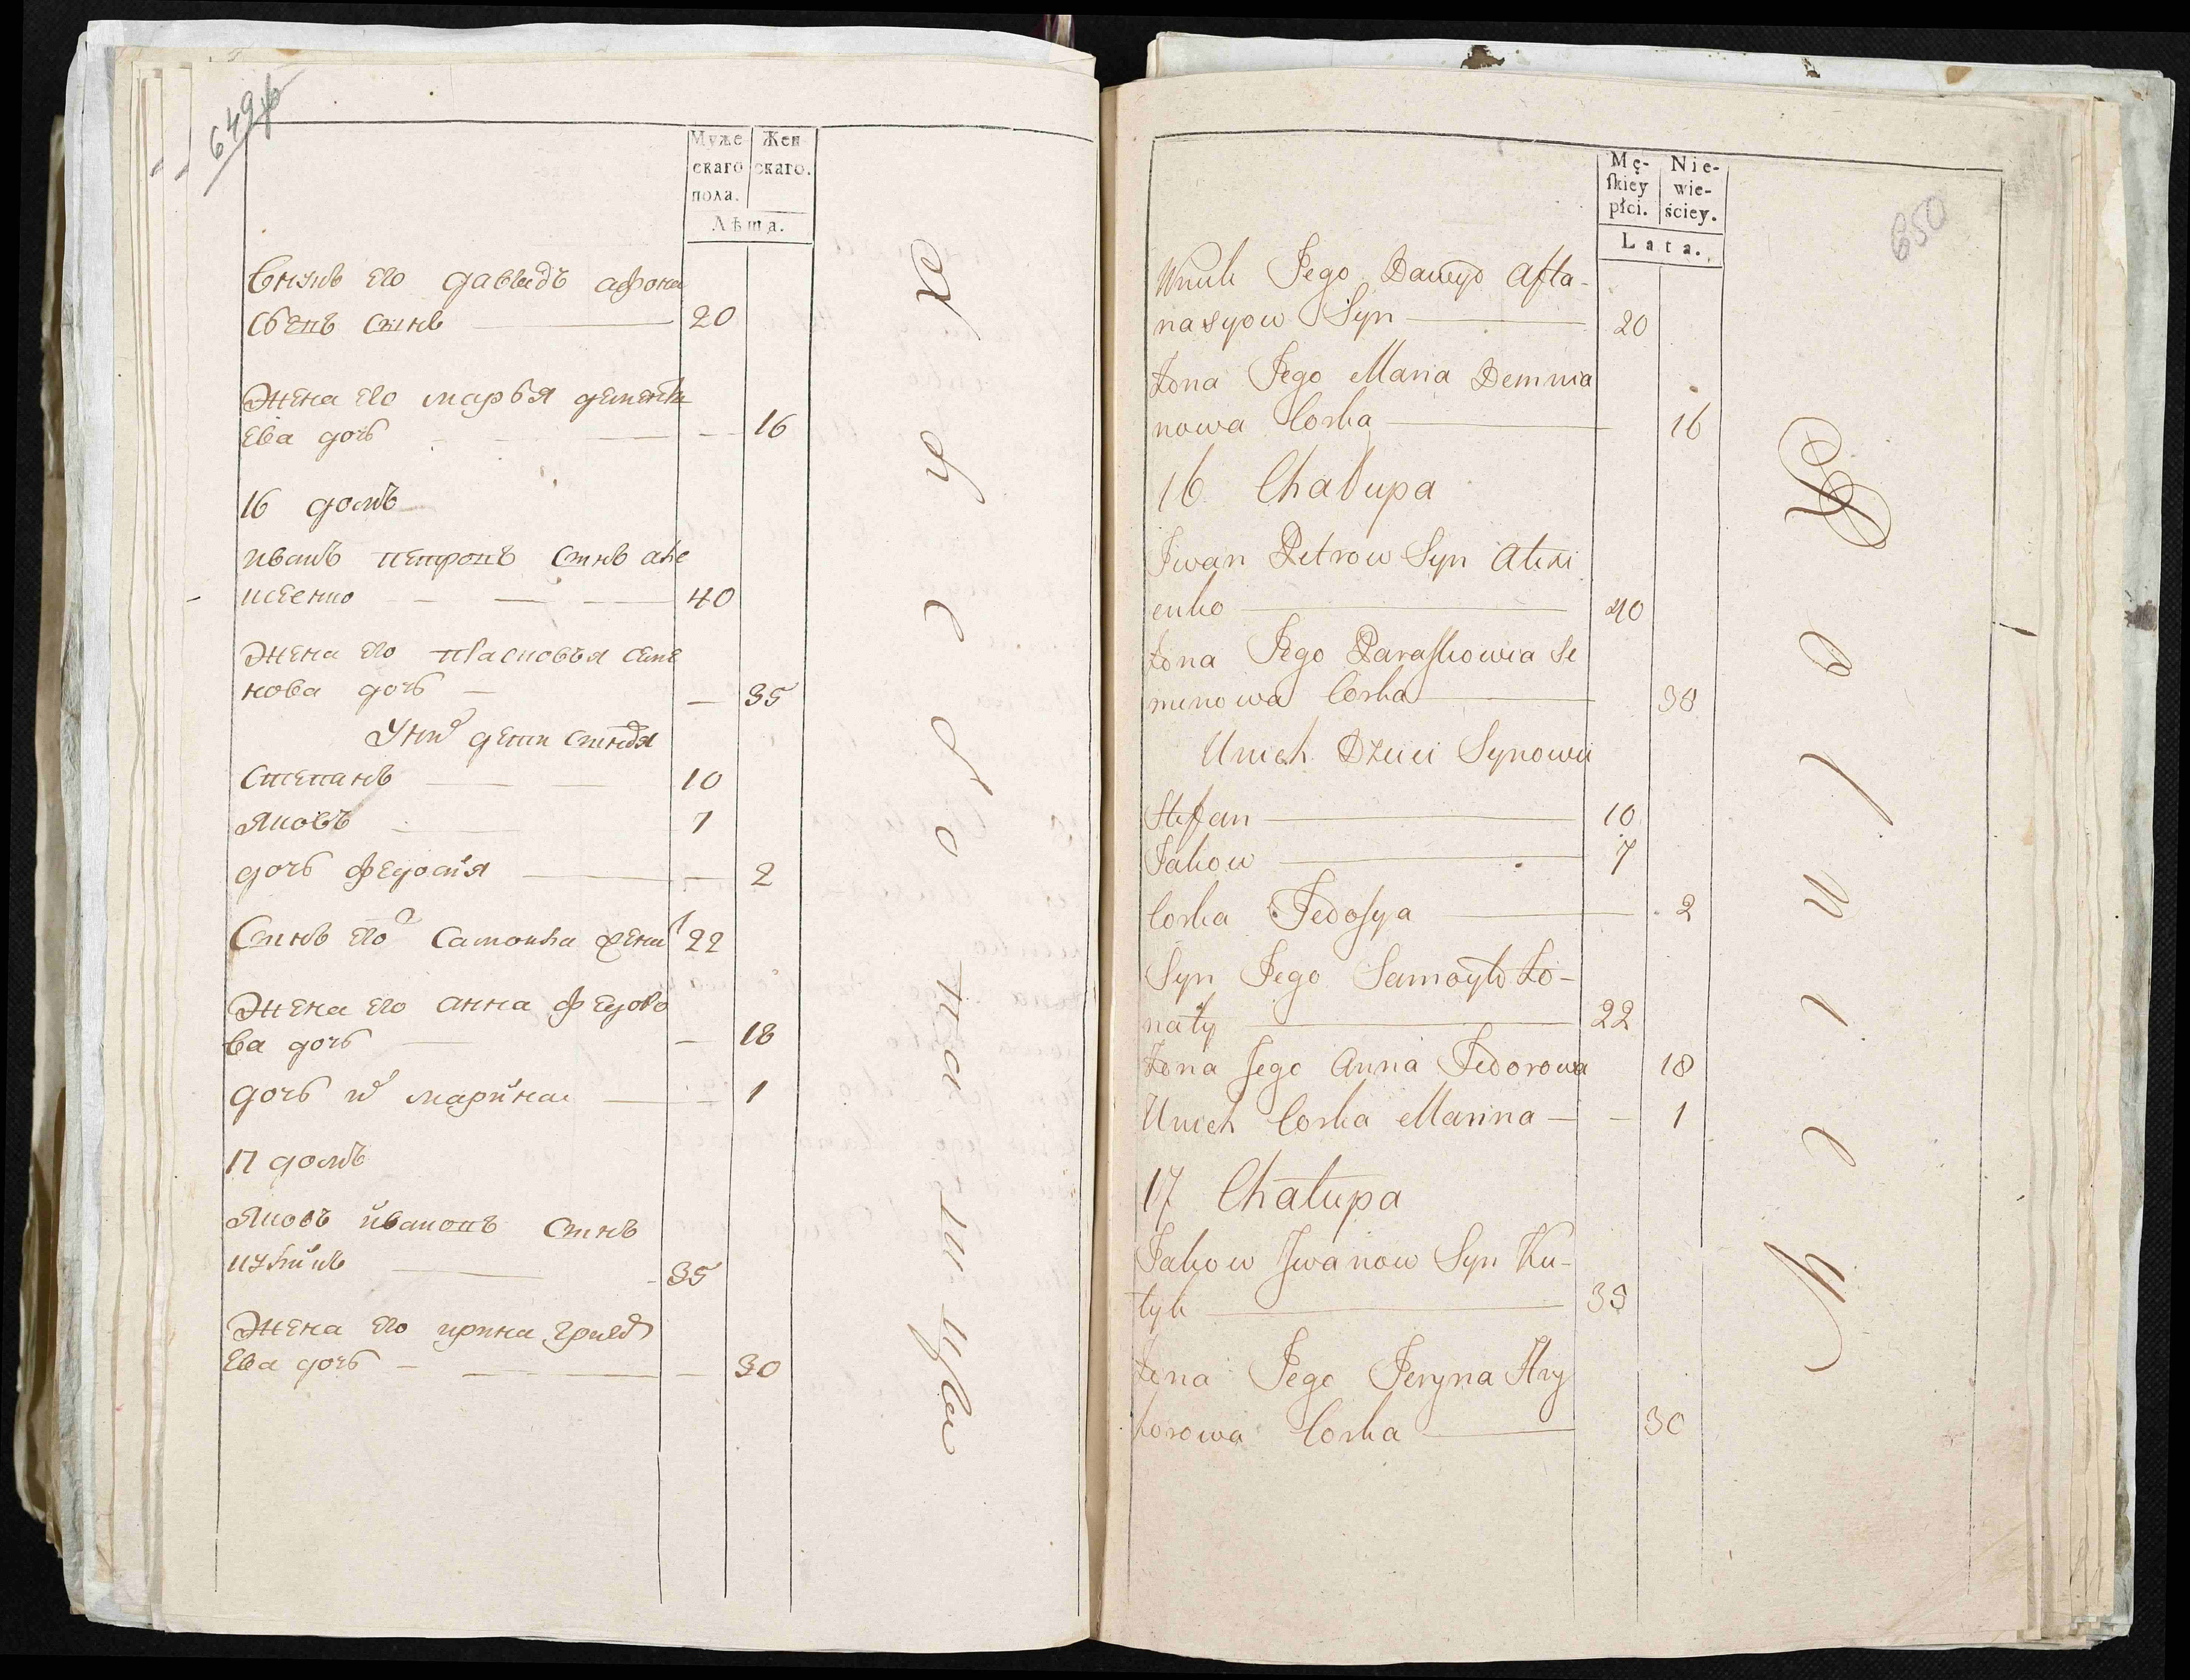 649об
Муже Жен
скаго скаго.
пола.
Лѣта.
внукъ его давыдъ афона
сьевъ сынъ 20
Жена его марья дементи
ева дочь 16
16 домъ
иванъ петровъ сынъ але
ксеенко 40
жена его прасковья семе
нова дочь 35
У них дети сыновя
степанъ 10
Яковъ 7
дочь федосия 2
сынъ его самоила жена 22
жена его анна федоро
ва дочь 18
дочь их марина 1
17 домъ
Яковъ ивановъ сынъ
кулик 35
Жена его ирина григор
ева дочь 30
650
Mę- Nie-
skiey wie-
płci. ściey.
Lata.
Wnuk Jego Dawyd Afta-
nasyow Syn 20
Żona Jego Maria Demnia
nowa Corka 16
16 Chałupa
Jwan Petrow Syn Alexi
enko 40
Żona Jego Paraskowia Se
menowa Corka 38
Unich Dzieci Synowie
Stefan 10
Jakow 7
Corka Fedosya 2
Syn Jego Samoyło Żo-
naty 22
Żona Jego Anna Fedorowa 18
Unich Corka Marina 1
17 Chałupa
Jakow Jwanow Syn Ku-
lyk 35
Żona Jego Jeryna Hry
horowa Corka 30